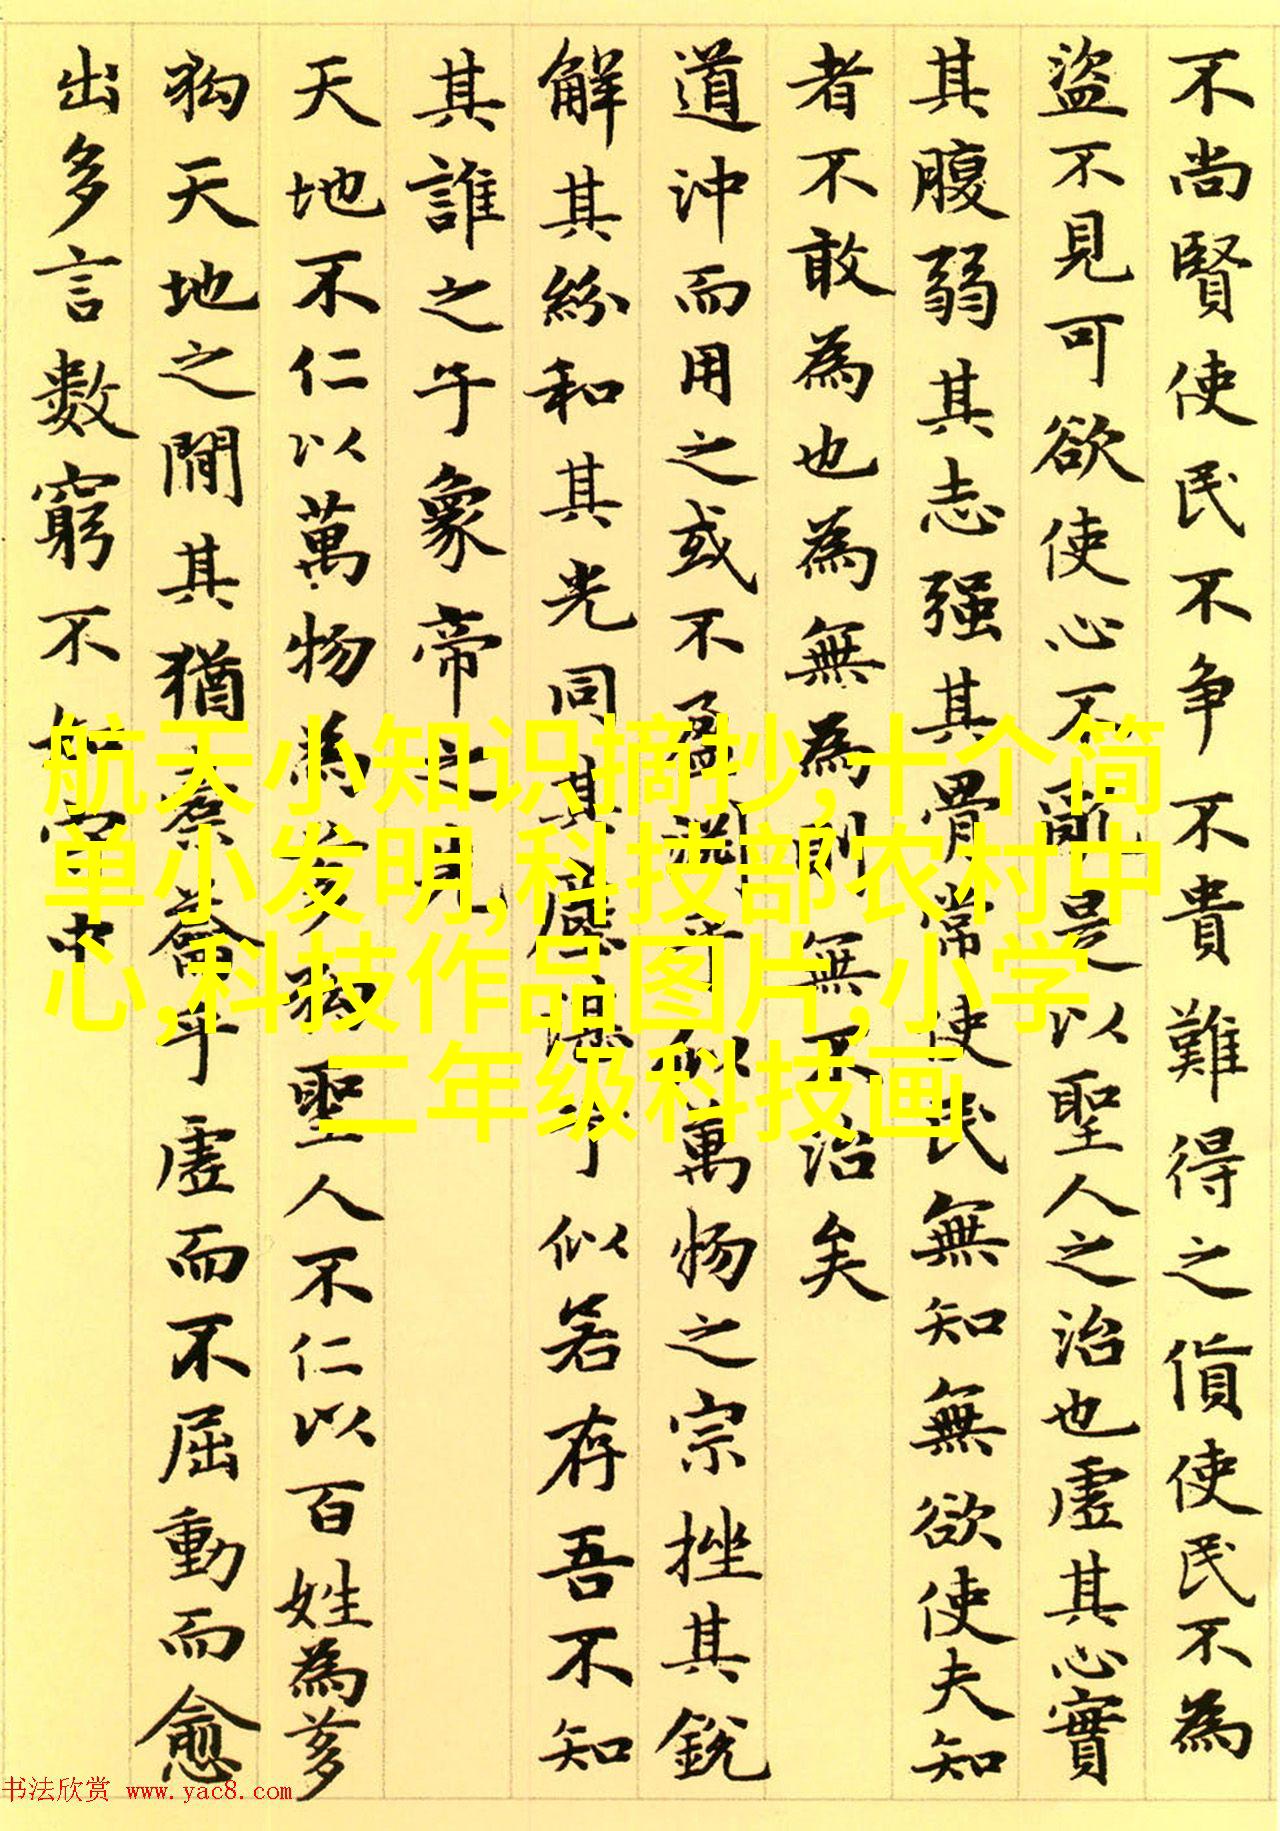 不尚賢使民不争不貴難得之貨使民不為
盜不見可欲使心不亂是以聖人之治也虛其心實
其腹弱其志强其骨常使民無知無欲使夫知
者不敢為也為無為則無不治矣
道沖而用之或不盈淵乎似萬物之宗挫其銳
解其紛和其光同其塵湛兮似若存吾不知
其誰之子象帝之先
天地不仁以萬物為芻狗聖人不仁以百姓為芻
狗天地之間其猶橐籥乎虛而不屈動而愈
出多言數窮不如守中
航天小知识摘抄,十个简
单小发明,科技部农村中
心,科技作品图片,小学
二年级科技画
书法欣赏 www.yac8.com